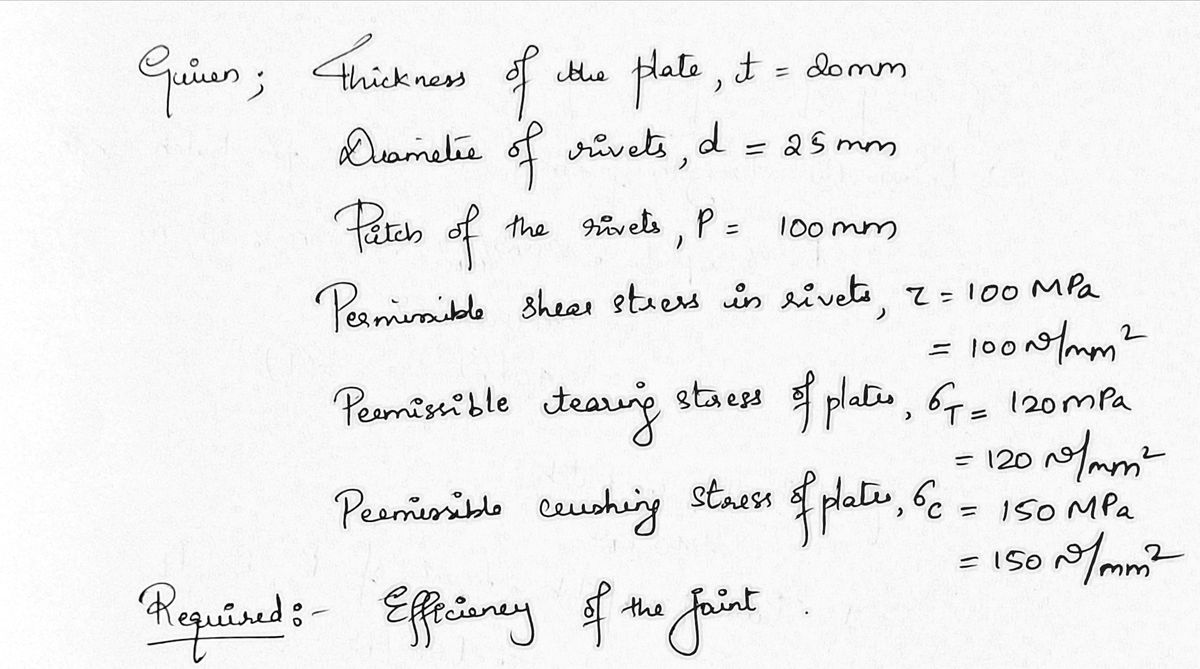 Given ; Thickness of the plate, t = 20mm
Diameter of rivets, d = 25 mm
Pitch of the rivets, P = 100 mm
Permissible shear stress in rivets, τ = 100 MPa
= 100 N/mm²
Permissible tearing stress of plates, σT = 120 mPa
= 120 N/mm²
Permissible crushing stress of plates, σc = 150 MPa
= 150 N/mm²
Required :- Efficiency of the joint .